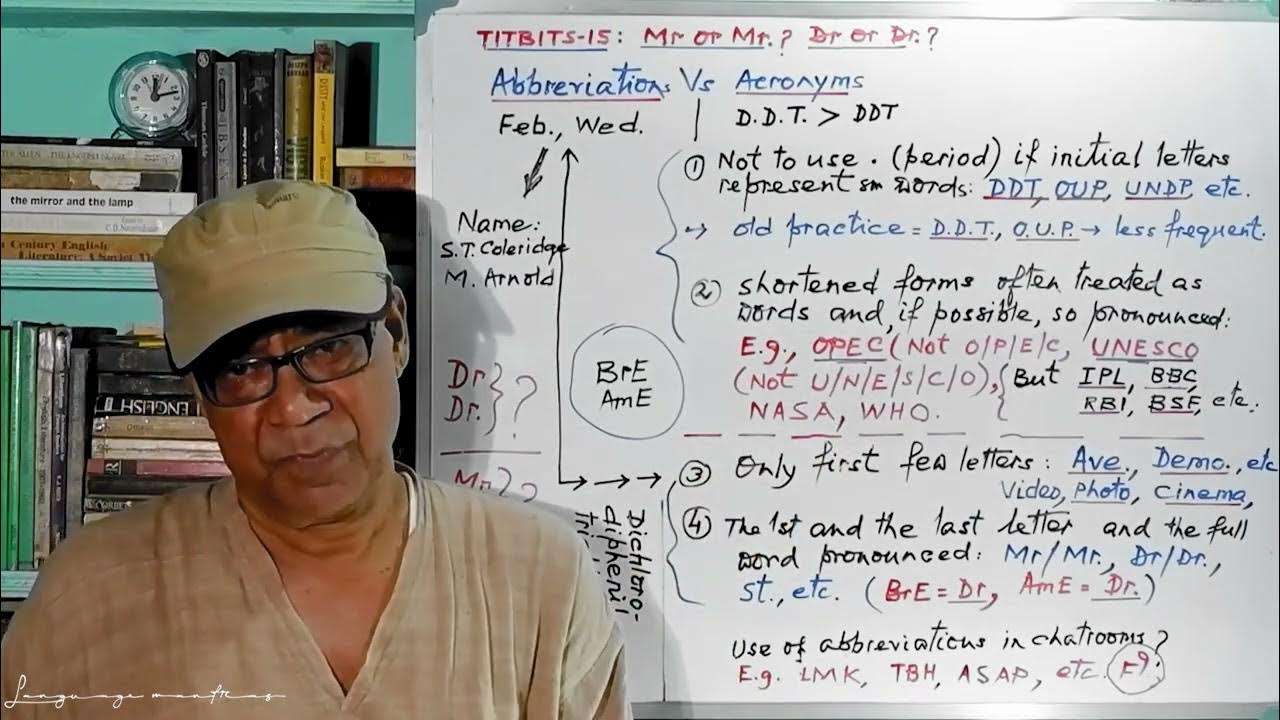 TITBITS-15: Mr or Mr.? Dr or Dr.?
Abbreviations Vs Acronyms
Feb., Wed.
D.D.T. > DDT
① Not to use . (period) if initial letters
represent sm words: DDT, OUP, UNDP, etc.
→ old practice = D.D.T., O.U.P. → less frequent.
Name:
S.T. Coleridge
M. Arnold
② shortened forms often treated as
words and, if possible, so pronounced:
E.g., OPEC (Not O/P/E/C, UNESCO
(Not U/N/E/S/C/O), { But IPL, BBC,
NASA, WHO. RBI, BSF, etc.
BrE
AmE
Dr } ?
Dr.
③ Only first few letters: Ave., Demo., etc
Video, Photo, Cinema,
④ The 1st and the last letter and the full
word pronounced: Mr/Mr., Dr/Dr.,
st., etc. (BrE = Dr, AmE = Dr.)
Dichloro-
diphenil
Use of abbreviations in chatrooms?
E.g. LMK, TBH, ASAP, etc. F9.
the mirror and the lamp
Century English
Literature: A Soviet
THE ENGLISH NOVEL
ENGLISH
IBSEN
Language mantras